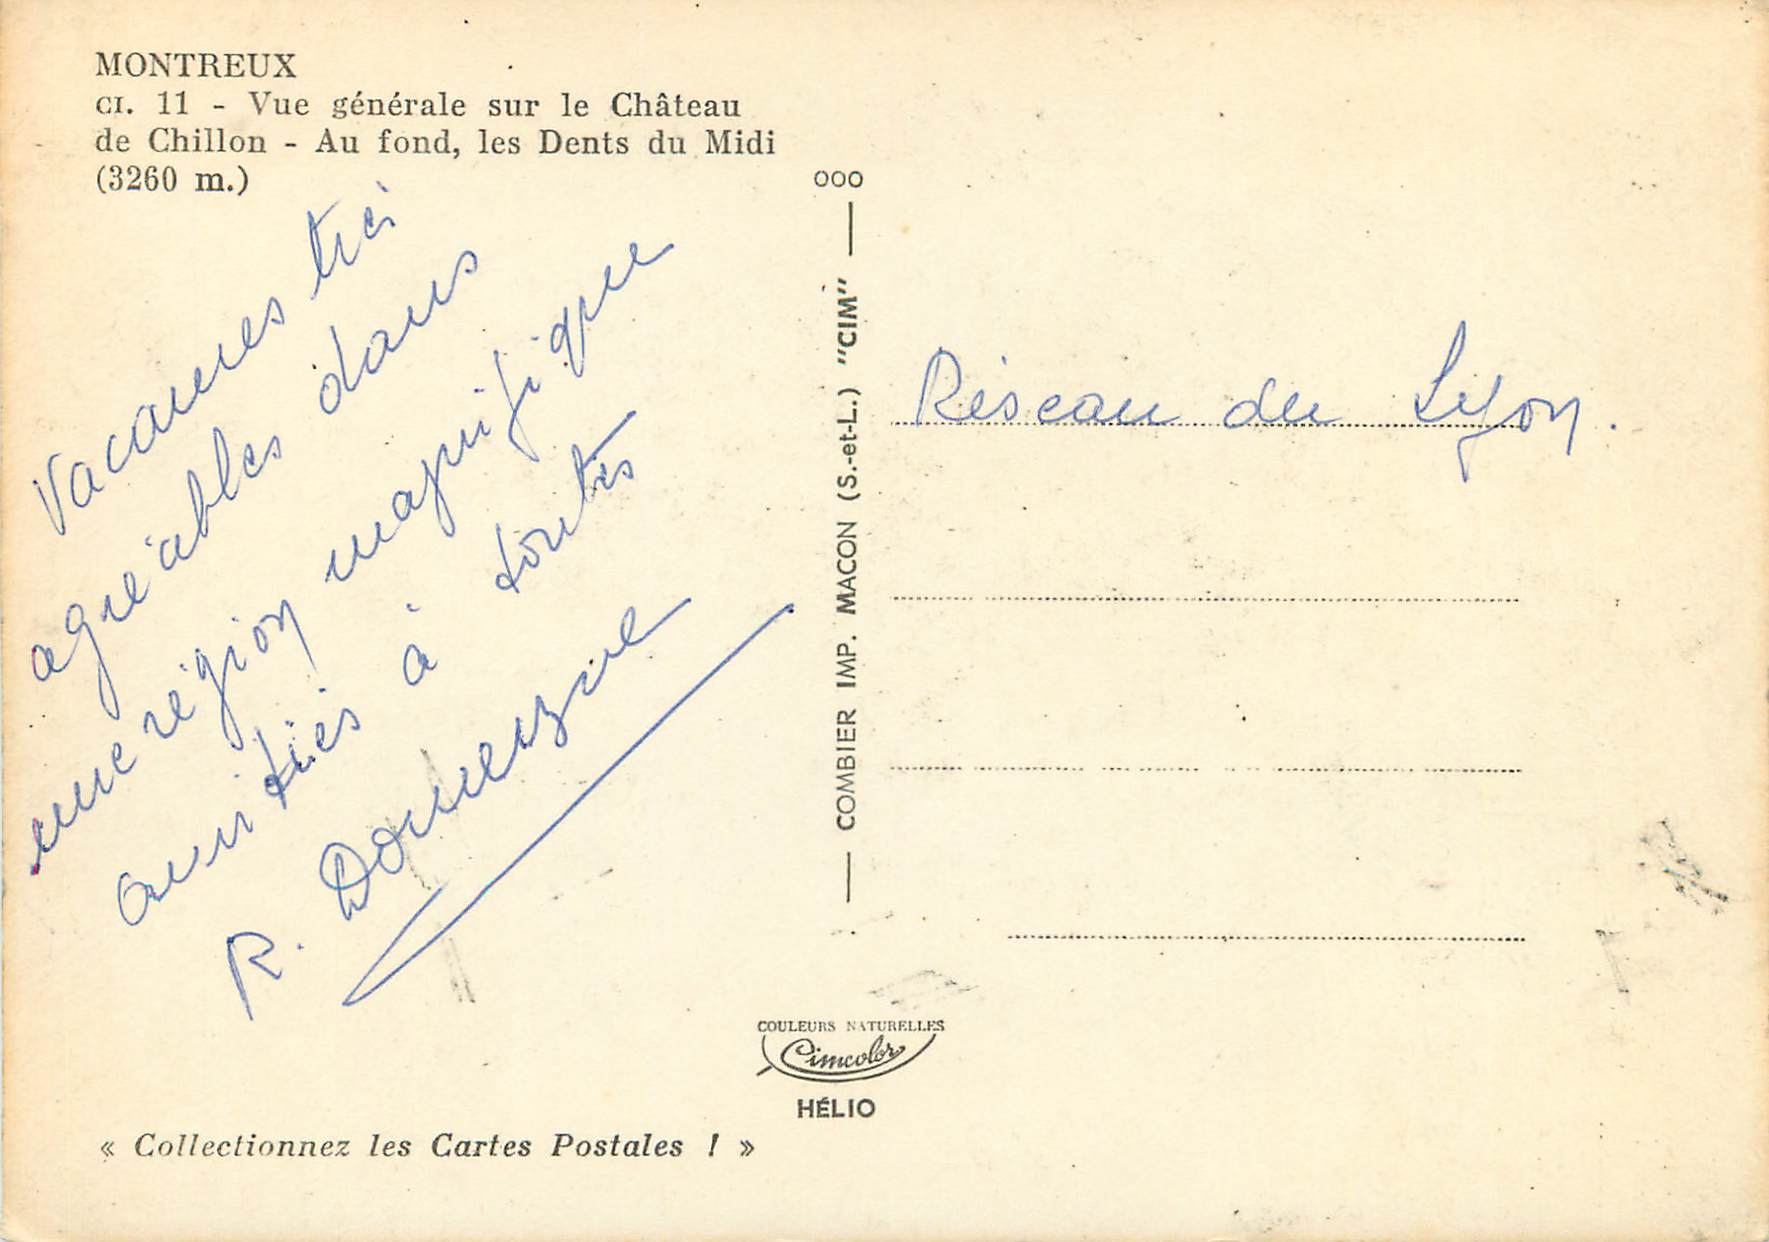 MONTREUX
CI. 11 - Vue générale sur le Château
de Chillon - Au fond, les Dents du Midi
(3260 m.)
Vacances très
agréables dans
une région magnifique
amitiés à toutes
R. Domenzue
OOO
COMBIER IMP. MACON (S.-et-L.) "CIM"
Réseau de Lyon.
COULEURS NATURELLES
Cimcolor
HÉLIO
« Collectionnez les Cartes Postales ! »